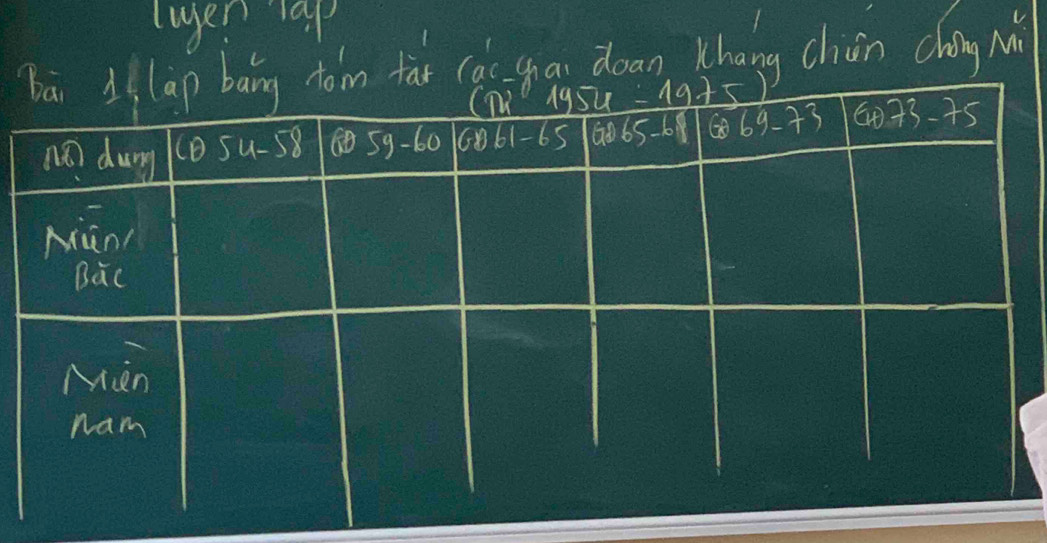 luyện tập
Bài 1: lập bảng tóm tắt các giai đoạn kháng chiến chống Mĩ
(Từ 1954 - 1975)
Nội dung GĐ 54-58 GĐ 59-60 GĐ 61-65 GĐ 65-68 GĐ 69-73 GĐ 73-75
Miền
Bắc
Miền
Nam